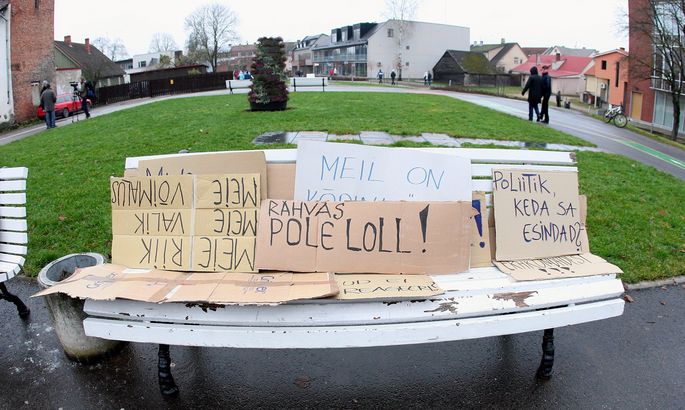 MEIE
VÕIMALUS
MEIE
VALIK
MEIE
RIIK
MEIL ON
RAHVAS
POLE LOLL!
!
POLIITIK,
KEDA SA
ESINDAD?